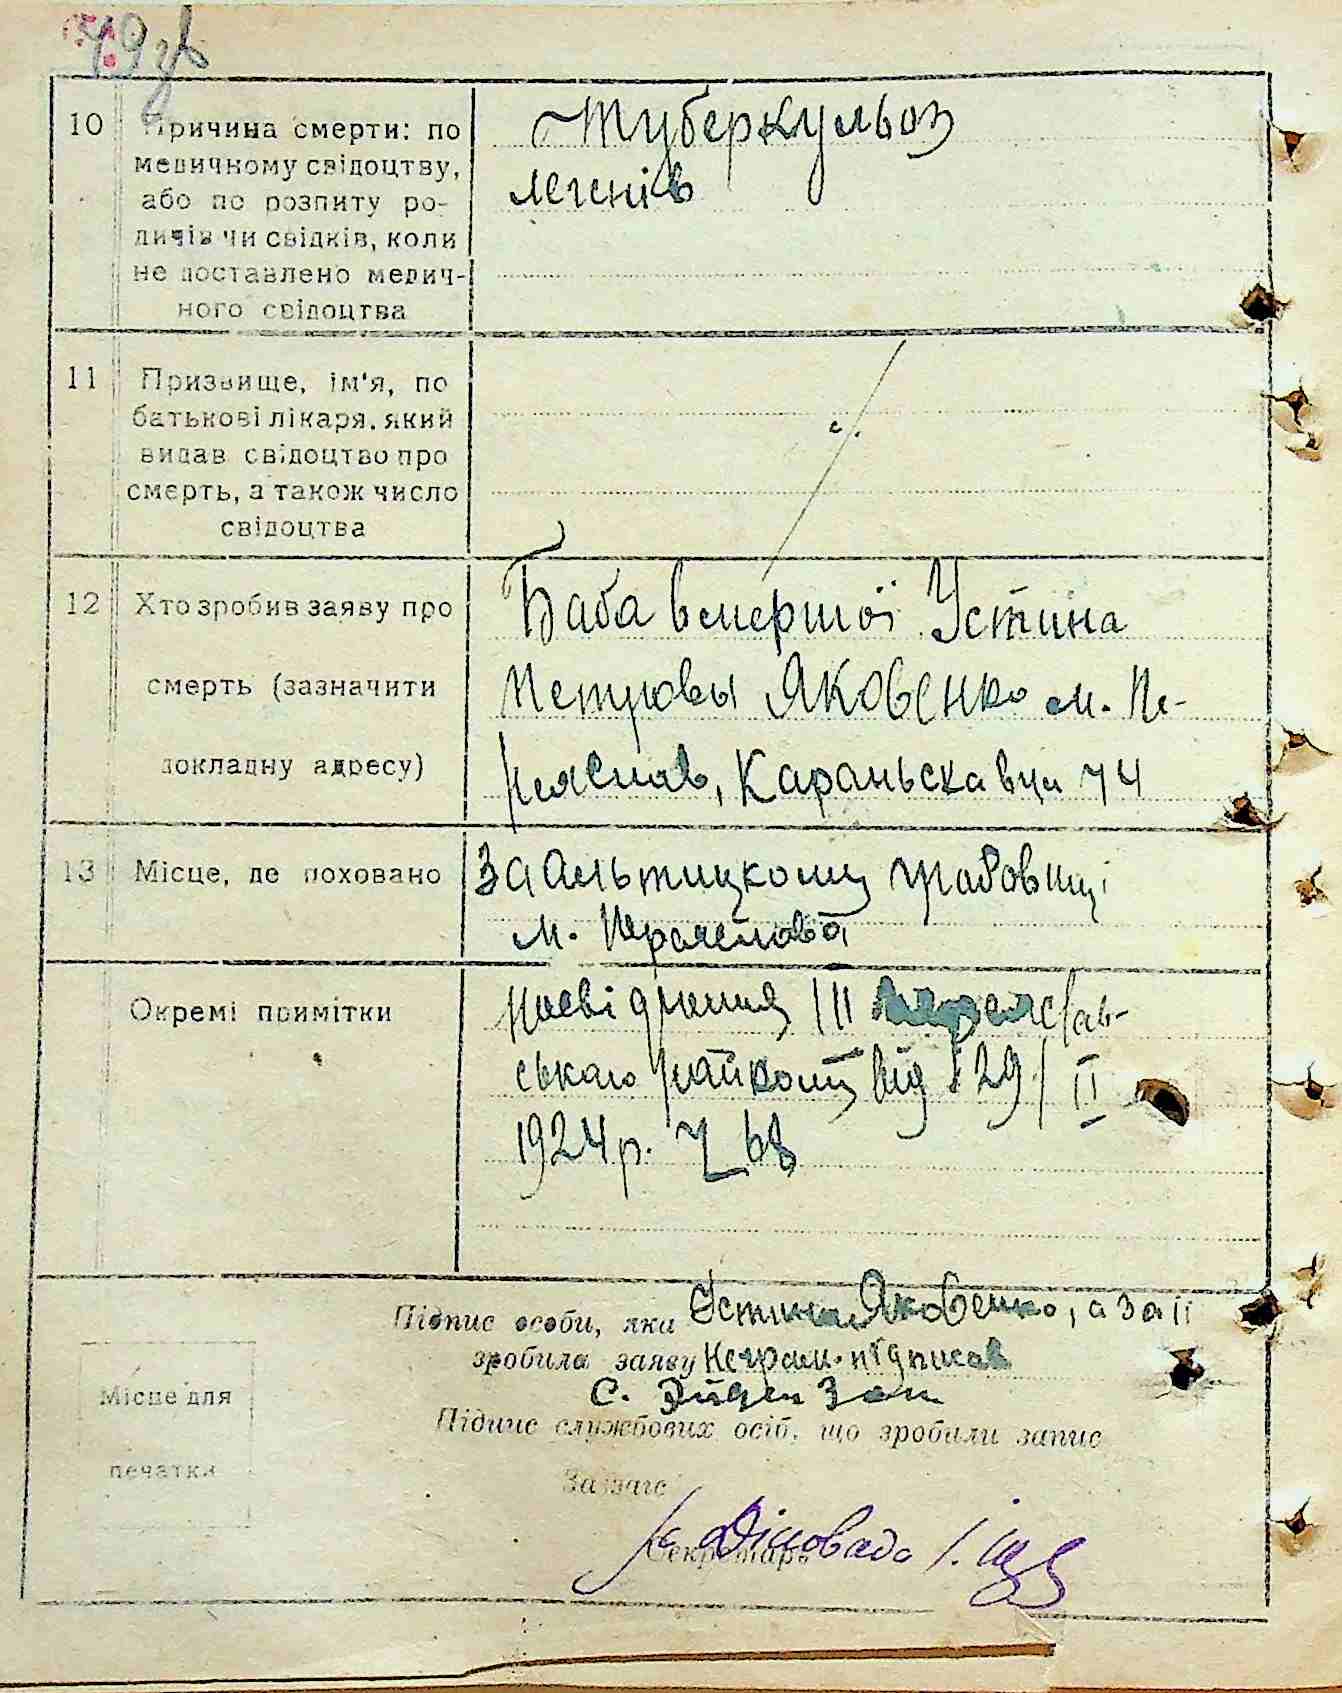 49 зв
10 Причина смерти: по
медичному свідоцтву,
або по розпиту ро-
дичів чи свідків, коли
не доставлено медич-
ного свідоцтва
Туберкульоз
легенів
11 Призвище, ім'я, по
батькові лікаря, який
видав свідоцтво про
смерть, а також число
свідоцтва
12 Хто зробив заяву про
смерть (зазначити
докладну адресу)
Баба вмершої Устина
Петровы Яковенко м. Пе-
реяслав, Караньська вул 74
13 Місце, де поховано
За Альтицкому гробовищі
м. Переяслова
Окремі примітки
Посвідчення
ського райкому від 29/II
1924 р. 68
Підпис особи, яка
зробила заяву
Устина Яковенко, а за її
неграм. підписав
С.
Місце для
печатки
Підпис службових осіб, що зробили запис
Завзагс
Секретарь